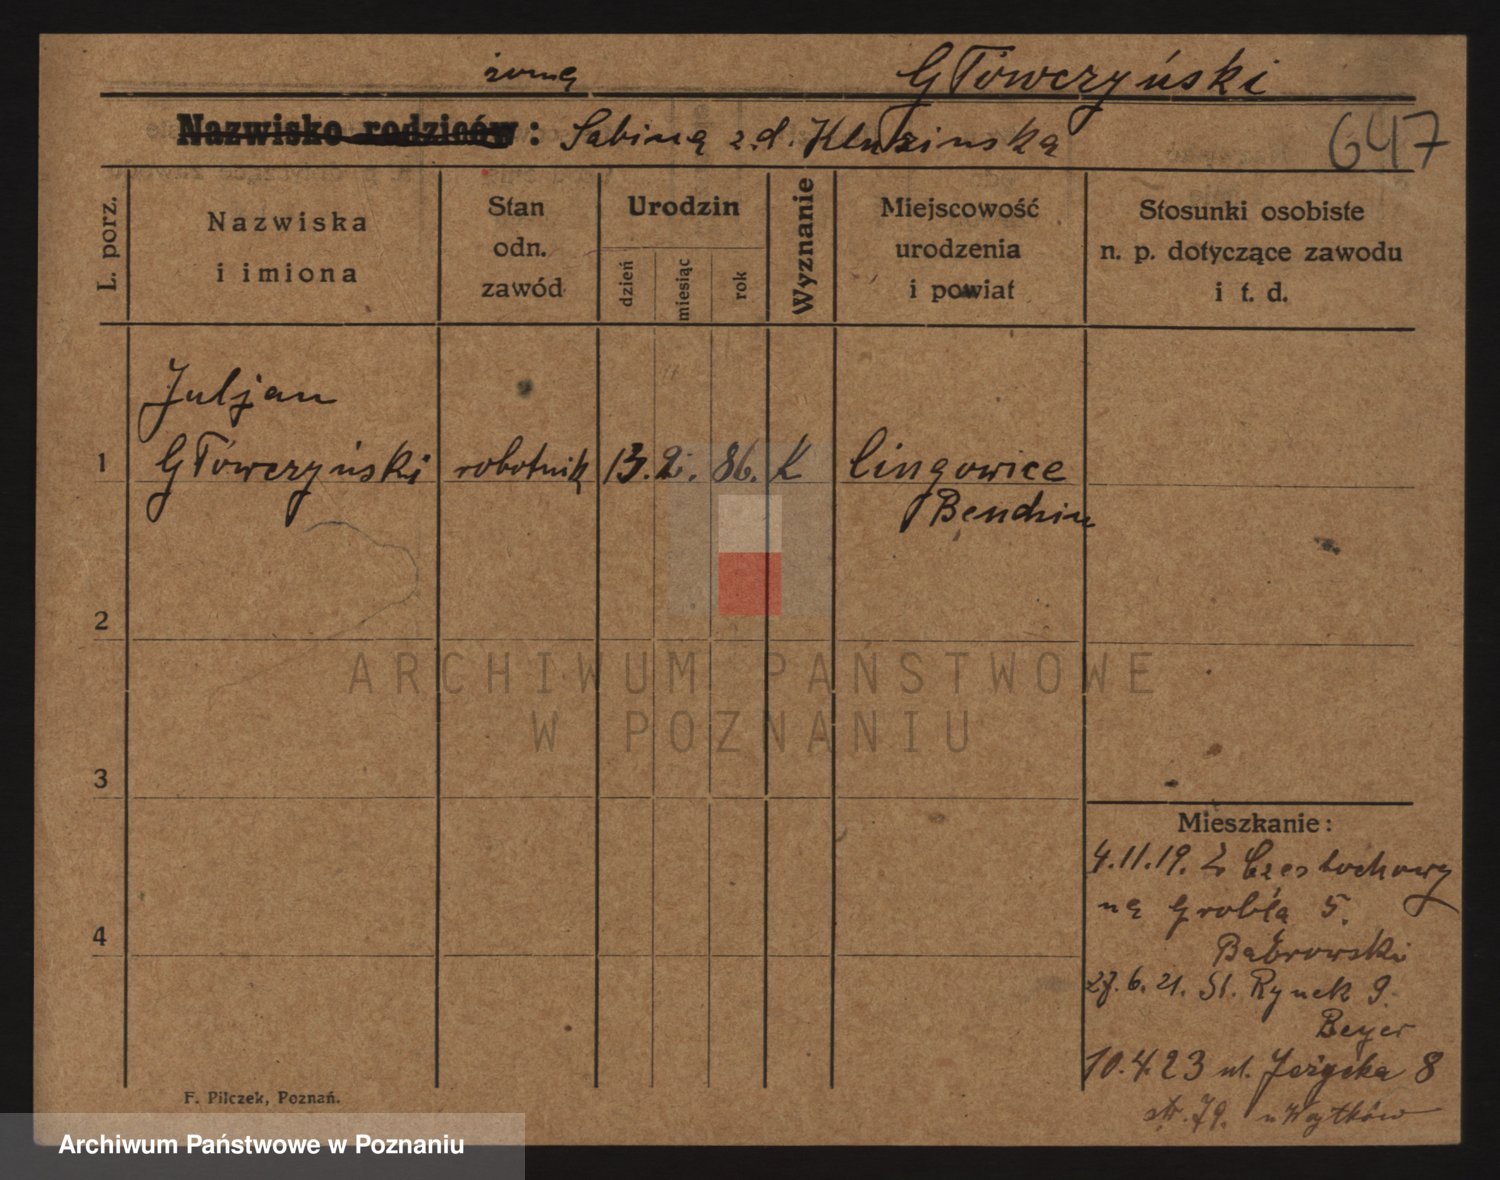 żona Główczyński
Nazwisko rodziców: Sabina z d. Kluzinska
647
L. porz.
Nazwiska
i imiona
Stan
odn.
zawód
Urodzin
dzień
miesiąc
rok
Wyznanie
Miejscowość
urodzenia
i powiat
Stosunki osobiste
n. p. dotyczące zawodu
i t. d.
Juljan
1 Główczyński robotnik 13. 2. 86. K Cingowice
Bendzin
2
ARCHIWUM PAŃSTWOWE
W POZNANIU
3
Mieszkanie:
4.11.19. z Częstochowy
na Grobla 5.
4
Dąbrowski
27. 6. 21. St. Rynek 9.
Beyer
10.4.23 ul. Jeżycka 8
str. 79.
F. Pilczek, Poznań.
Archiwum Państwowe w Poznaniu